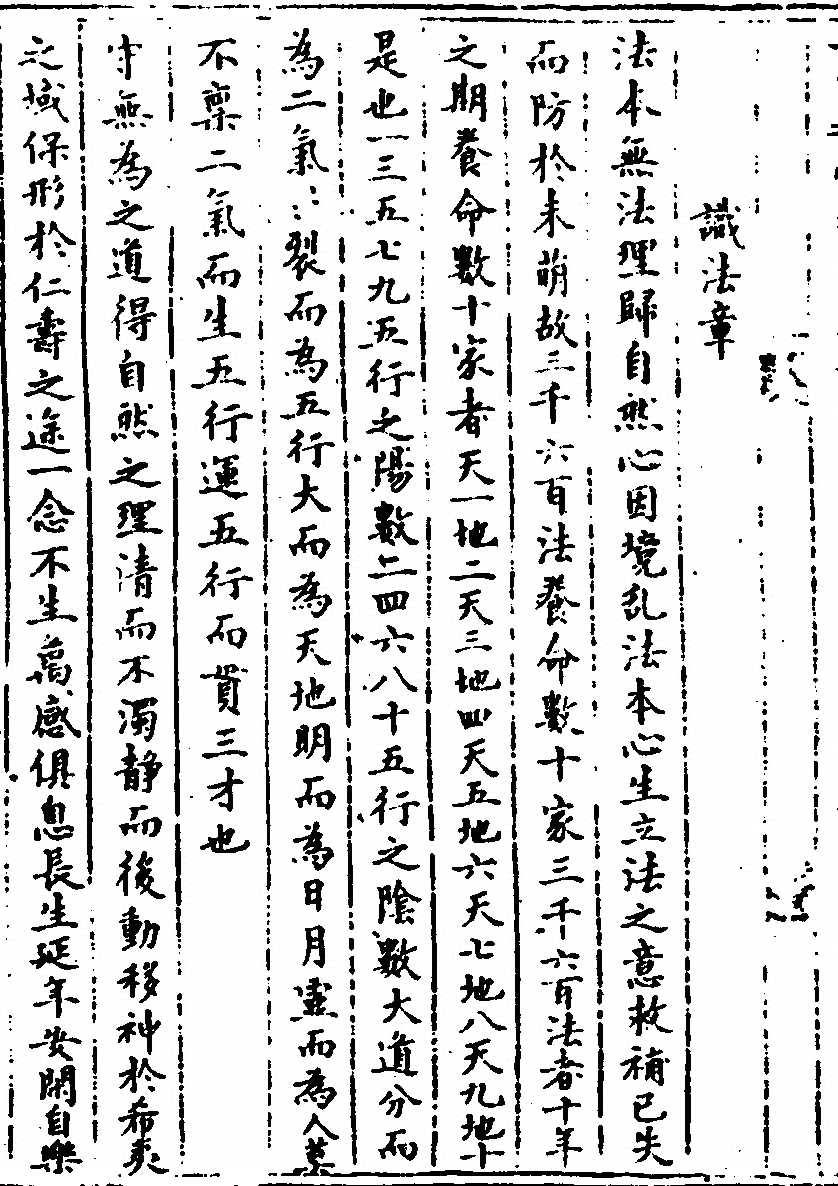 識法章
法本無法理歸自然心因境乱法本心生立法之意救補已失
而防於未萌故三千六百法養命數十家三千六百法者十年
之期養命數十家者天一地二天三地四天五地六天七地八天九地十
是也一三五七九五行之陽數二四六八十五行之陰數大道分而
為二氣〻裂而為五行大而為天地明而為日月靈而為人莫
不稟二氣而生五行運五行而貫三才也
守無為之道得自然之理清而不濁静而後動移神於希夷
之域保形於仁壽之途一念不生萬感俱息長生延年安閑自樂